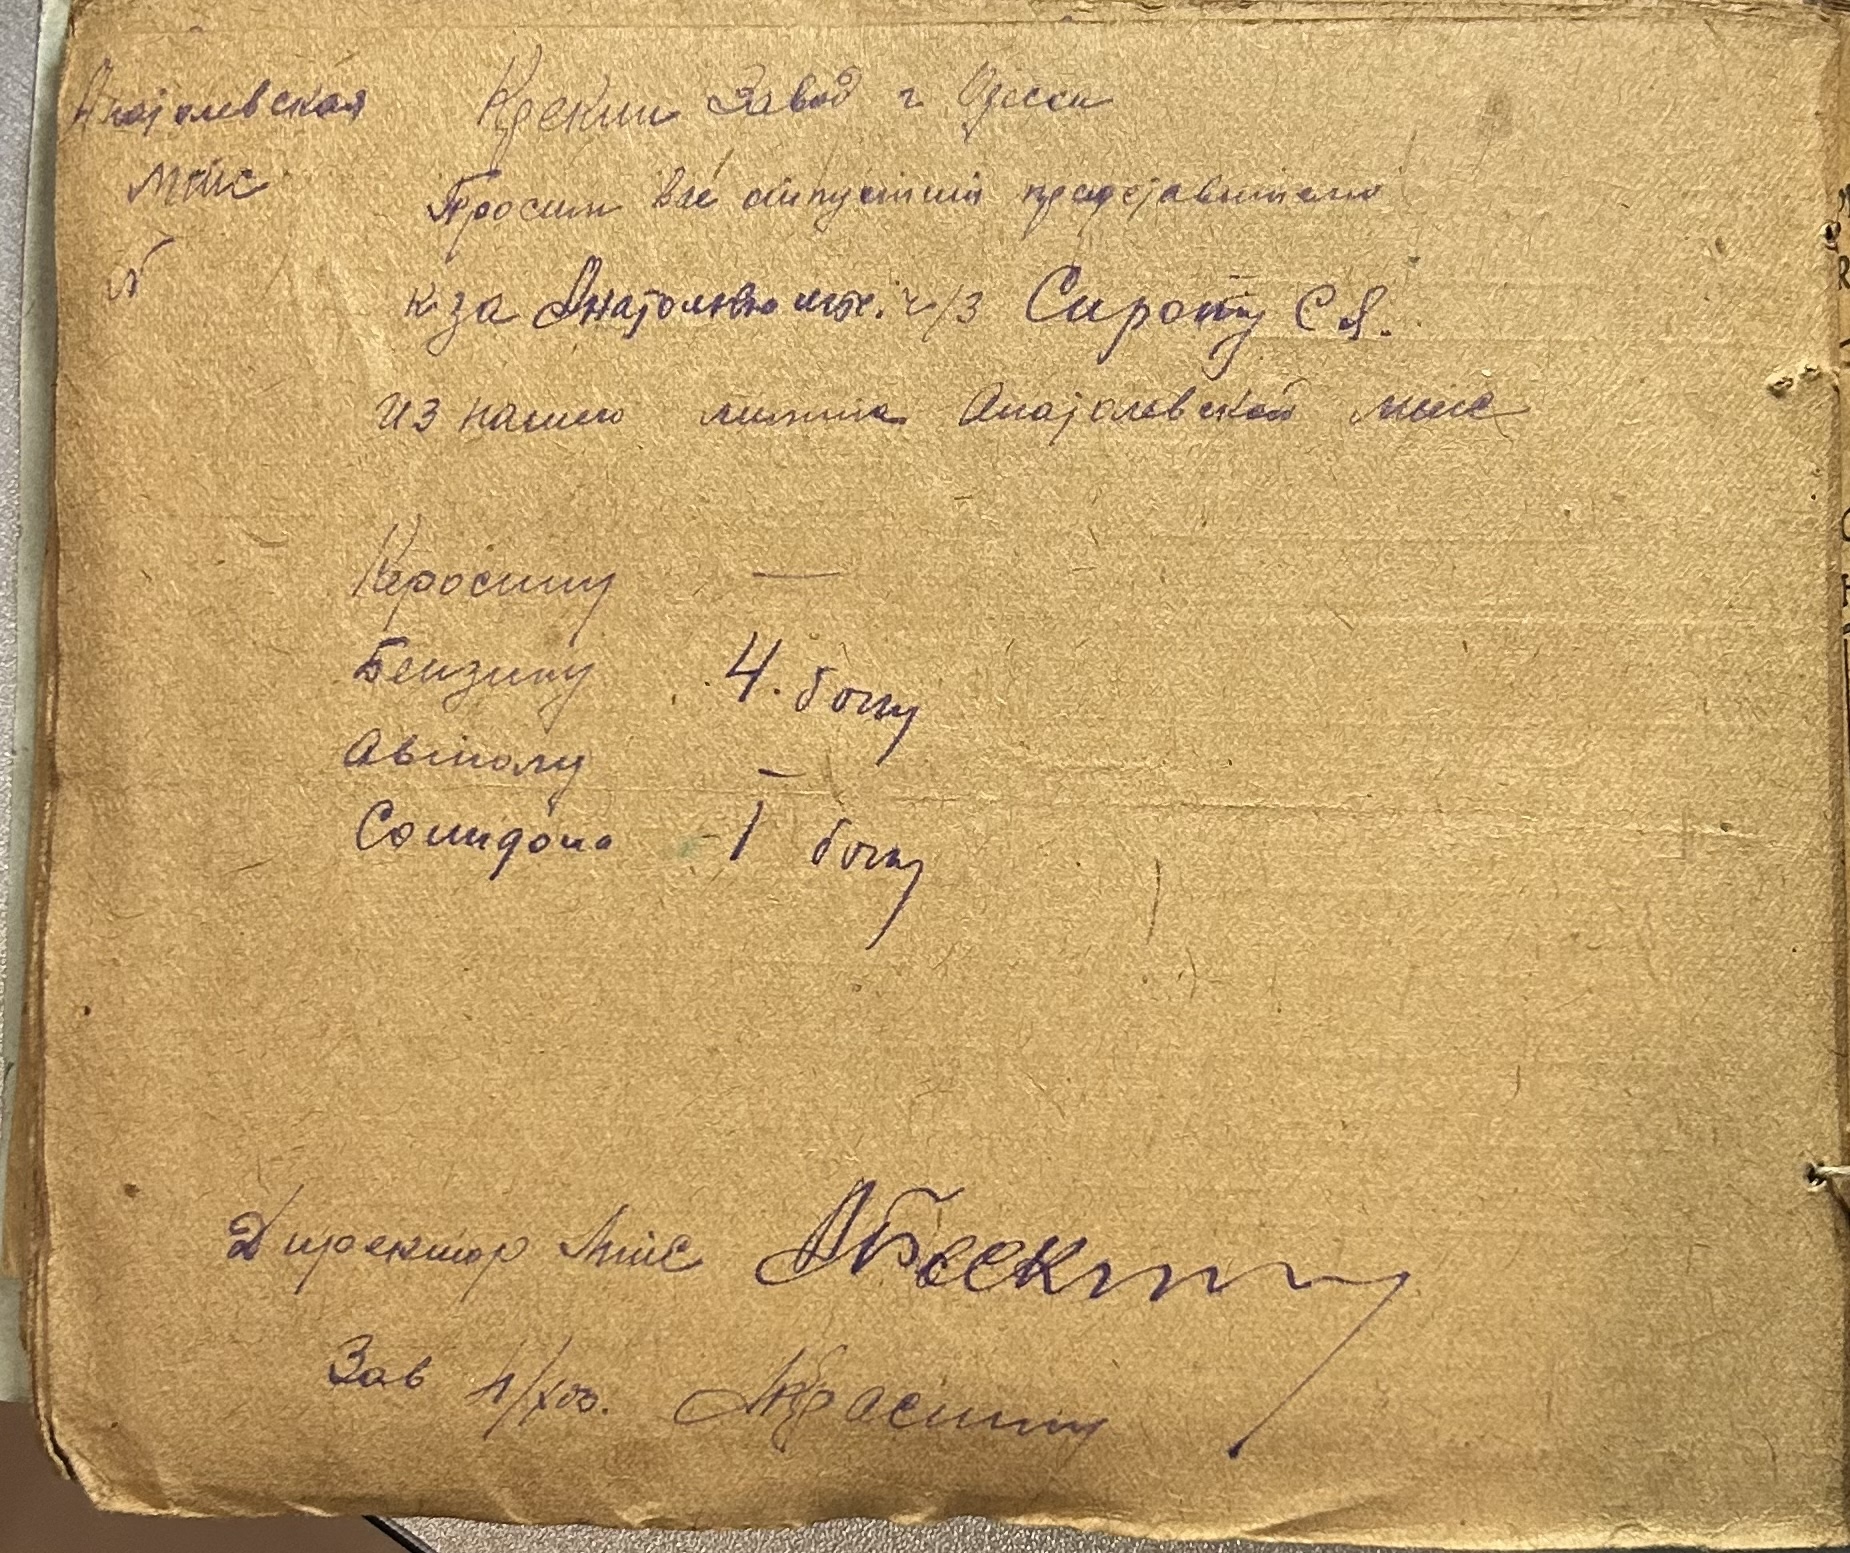 Анатолевская
мтс
Крекин Завод г. Одесса
Просим Вас отпустить представителю
к-за Анатолево ч/з Сироту С Я.
из нашего лимита Анатолевской мтс
Керосину —
Бензину 4. бочку
Автолу —
Солидола - 1 бочку
Директор Мтс
Зав Н/хоз.